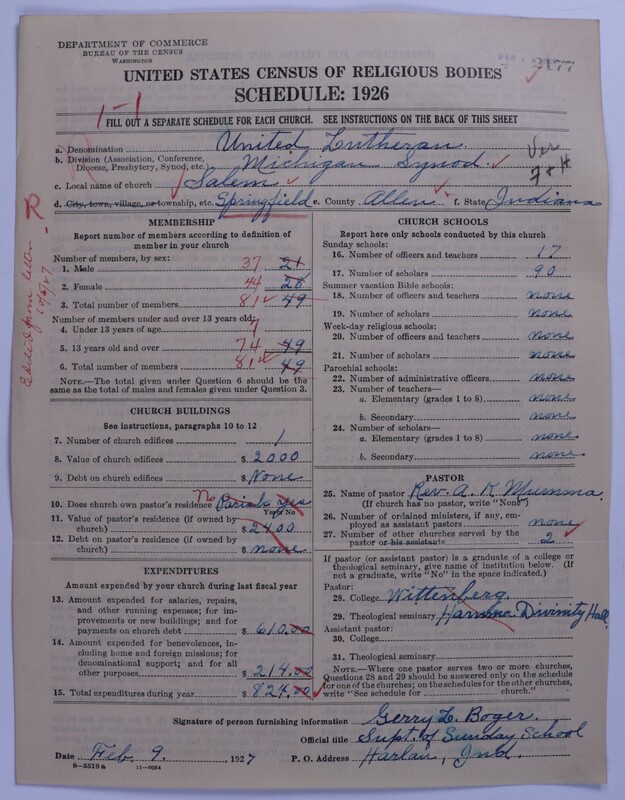 DEPARTMENT OF COMMERCE
BUREAU OF THE CENSUS
WASHINGTON
2177
UNITED STATES CENSUS OF RELIGIOUS BODIES
SCHEDULE: 1926
1-1
FILL OUT A SEPARATE SCHEDULE FOR EACH CHURCH. SEE INSTRUCTIONS ON THE BACK OF THIS SHEET
a. Denomination United Lutheran
b. Division (Association, Conference, Diocese, Presbytery, Synod, etc.) Michigan Synod
Ver
c. Local name of church Salem
d. City, town, village, or township, etc. Springfield e. County Allen f. State Indiana
Edited from letter
R
MEMBERSHIP
Report number of members according to definition of
member in your church
Number of members, by sex:
1. Male 37 21
2. Female 44 28
3. Total number of members 81 49
Number of members under and over 13 years old:
4. Under 13 years of age 7
5. 13 years old and over 74 49
6. Total number of members 81 49
NOTE.—The total given under Question 6 should be
the same as the total of males and females given under Question 3.
CHURCH BUILDINGS
See instructions, paragraphs 10 to 12
7. Number of church edifices 1
8. Value of church edifices $ 2000
9. Debt on church edifices $ None
10. Does church own pastor's residence No Parish Yes
Yes or No
11. Value of pastor's residence (if owned by
church) $ 2400
12. Debt on pastor's residence (if owned by
church) $ none
EXPENDITURES
Amount expended by your church during last fiscal year
13. Amount expended for salaries, repairs,
and other running expenses; for im-
provements or new buildings; and for
payments on church debt $ 610.00
14. Amount expended for benevolences, in-
cluding home and foreign missions; for
denominational support; and for all
other purposes $ 214.00
15. Total expenditures during year $ 824.00
CHURCH SCHOOLS
Report here only schools conducted by this church
Sunday schools:
16. Number of officers and teachers 17
17. Number of scholars 90
Summer vacation Bible schools:
18. Number of officers and teachers none
19. Number of scholars none
Week-day religious schools:
20. Number of officers and teachers none
21. Number of scholars none
Parochial schools:
22. Number of administrative officers none
23. Number of teachers—
a. Elementary (grades 1 to 8) none
b. Secondary none
24. Number of scholars—
a. Elementary (grades 1 to 8) none
b. Secondary none
PASTOR
25. Name of pastor Rev. A. K. Mumma
(If church has no pastor, write "None")
26. Number of ordained ministers, if any, em-
ployed as assistant pastors none
27. Number of other churches served by the
pastor or his assistants 2
If pastor (or assistant pastor) is a graduate of a college or
theological seminary, give name of institution below. (If
not a graduate, write "No" in the space indicated.)
Pastor:
28. College Wittenberg
29. Theological seminary Hamma Divinity Hall
Assistant pastor:
30. College
31. Theological seminary
NOTE.—Where one pastor serves two or more churches,
Questions 28 and 29 should be answered only on the schedule
for one of the churches; on the schedules for the other churches,
write "See schedule for church."
Signature of person furnishing information Gerry L. Boger
Official title Supt. of Sunday School
Date Feb. 9, 1927 P. O. Address Harlan, Ind.
8-5518a 11-9054